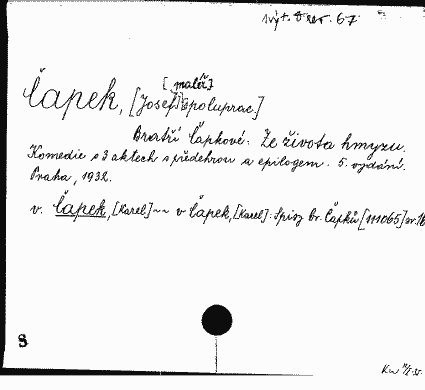 rev. 67
[malíř]
Čapek, [Josef] [spoluprac.]
Bratří Čapkové: Ze života hmyzu.
Komedie o 3 aktech s předehrou a epilogem. 5. vydání.
Praha, 1932.
v. Čapek, [Karel] ~~ v Čapek, [Karel]: Spisy br. Čapků [111065] sv. 16
8